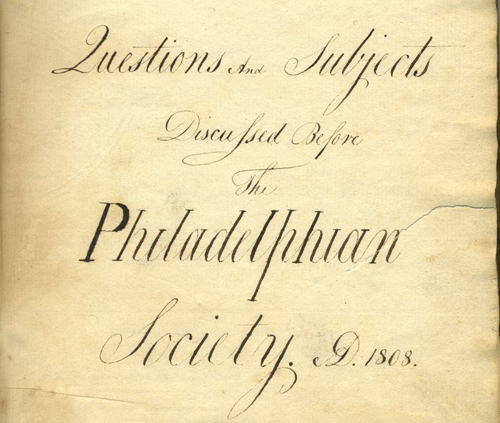 Questions And Subjects
Discuſsed Before
The
Philadelphian
Society. AD. 1808.